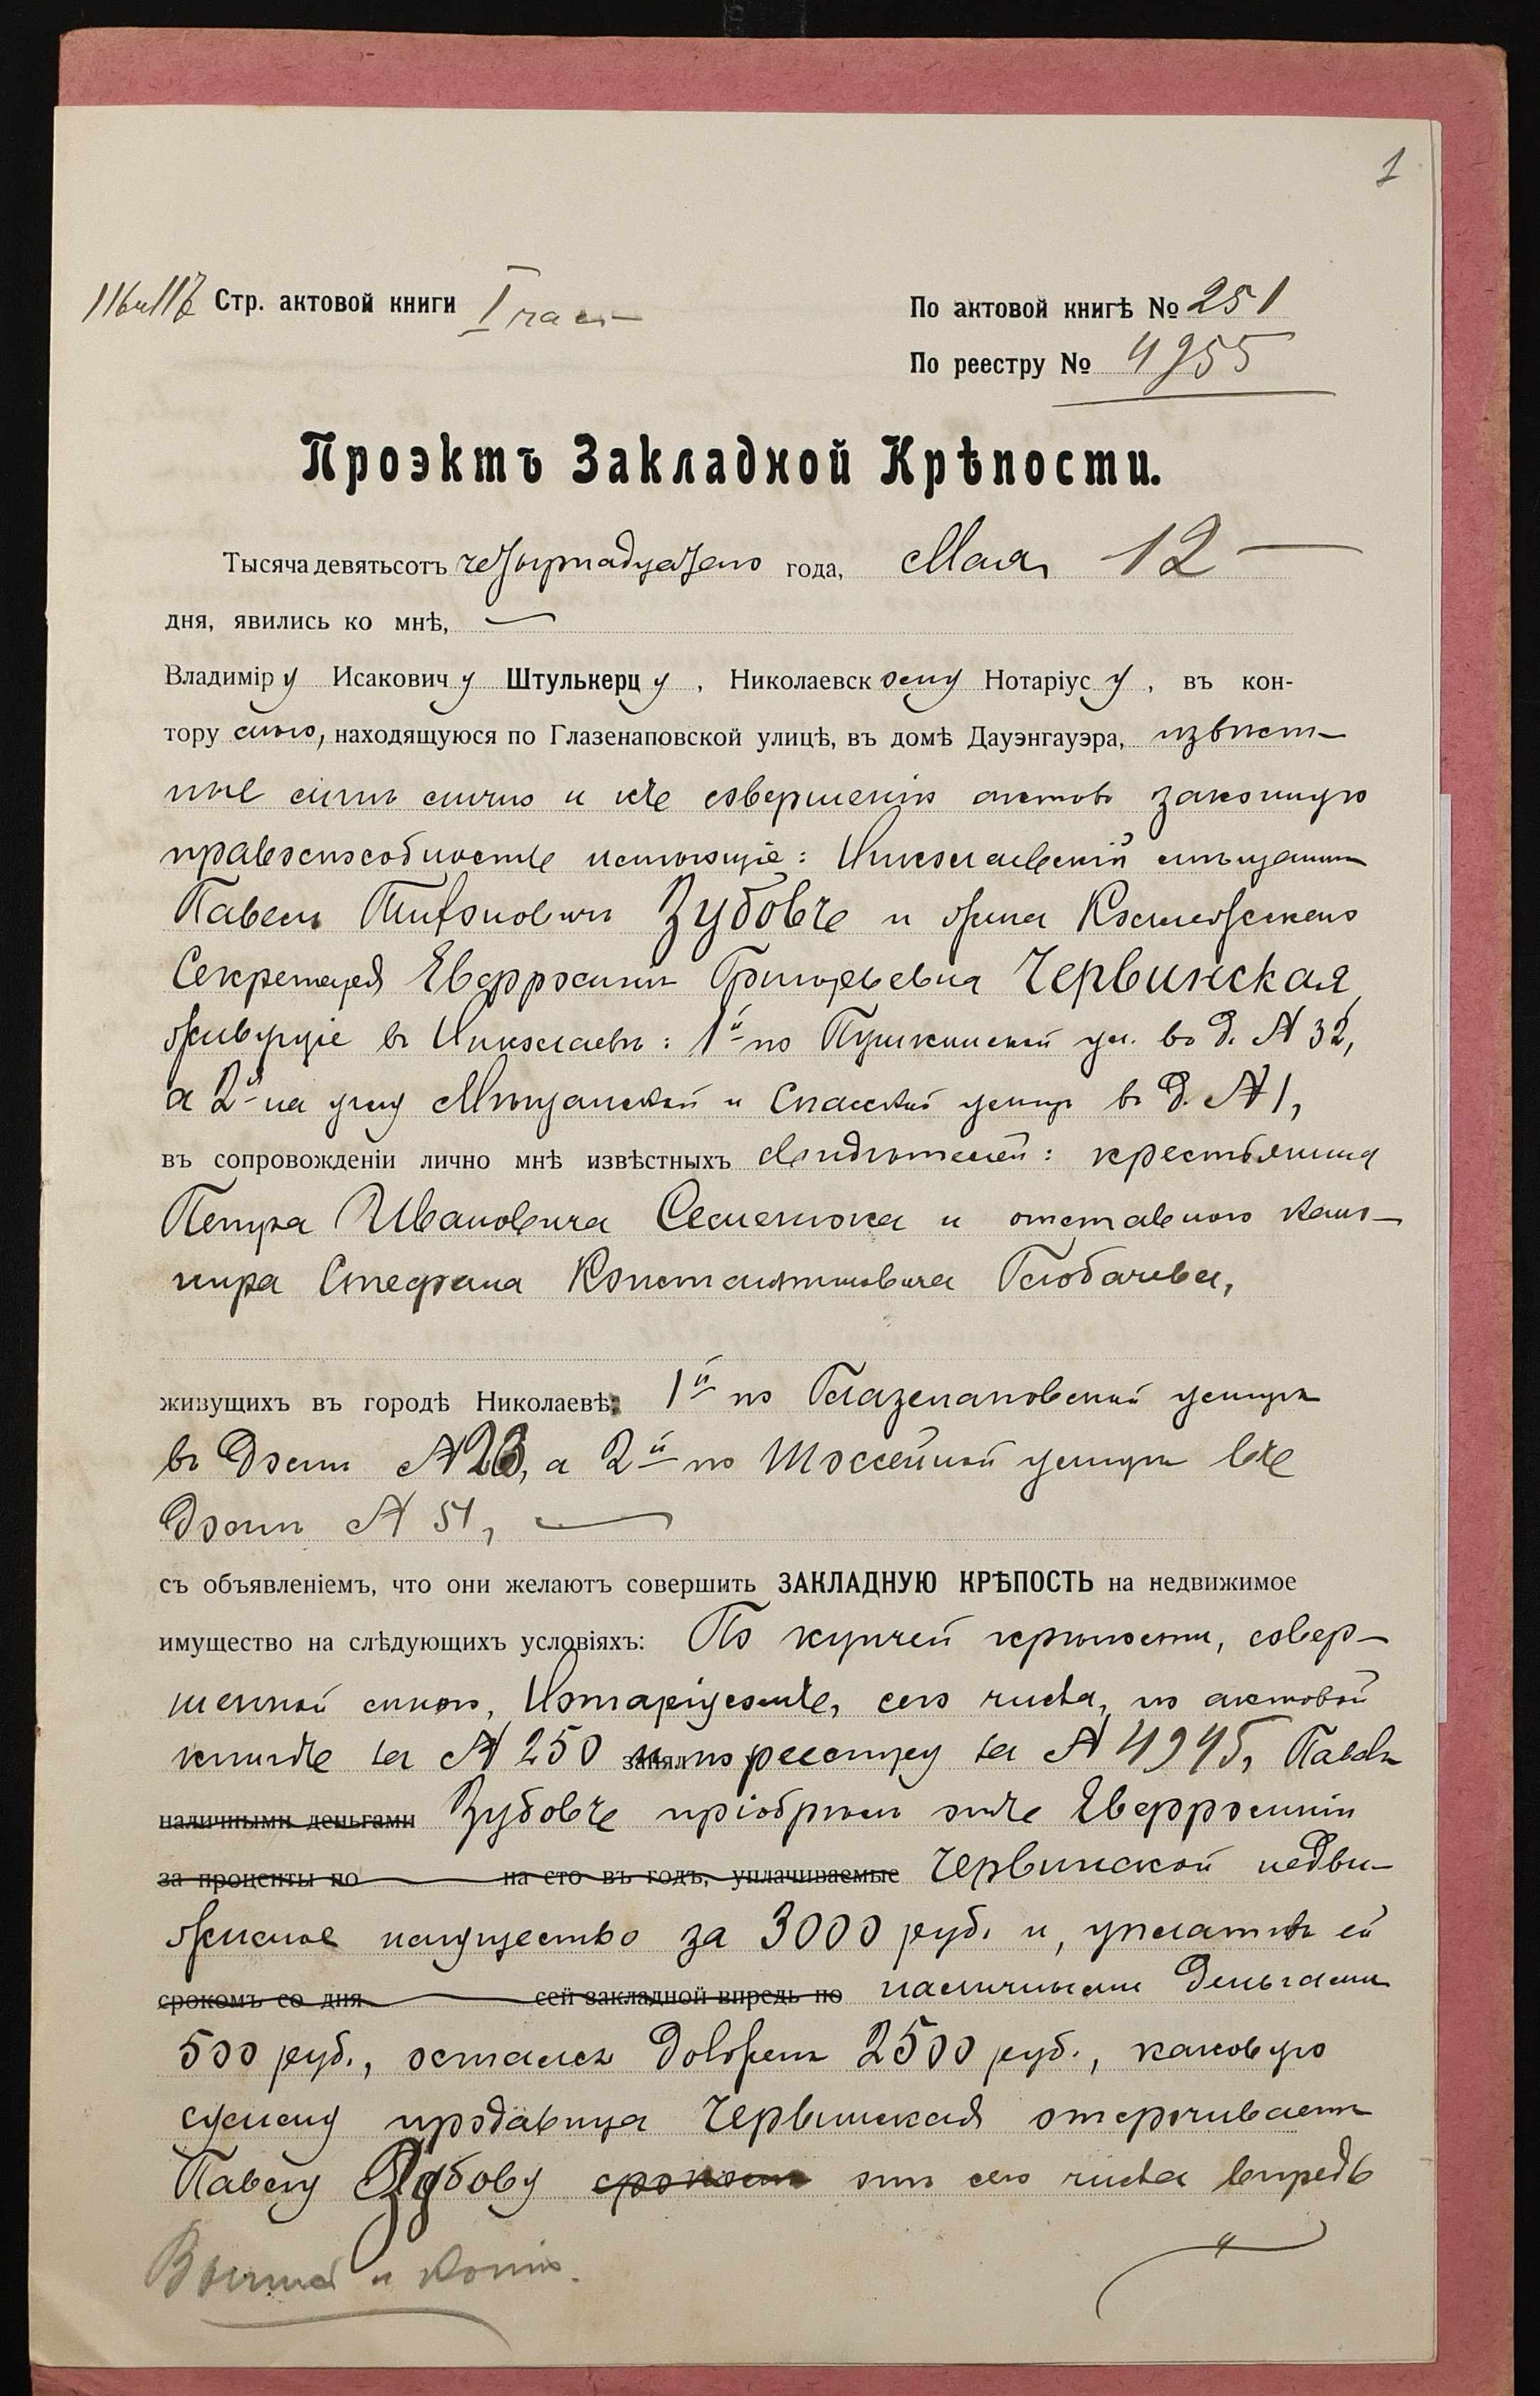 1
116 и 117 Стр. актовой книги I част
По актовой книгѣ № 251
По реестру № 4955
Проэктъ Закладной Крѣпости.
Тысяча девятьсотъ четырнадцатаго года, Мая 12 —
дня, явились ко мнѣ,
Владимір у Исакович у Штулькерц у , Николаевск ому Нотаріус у , въ кон-
тору мою, находящуюся по Глазенаповской улицѣ, въ домѣ Дауэнгауэра, извѣст-
ные мнѣ лично и къ совершенію актовъ законную
правоспособность имѣющіе: Николаевскій мѣщанинъ
Павелъ Тифоновичъ Зубовъ и жена Коллежскаго
Секретаря Евфросинія Григорьевна Червинская,
живущіе въ Николаевѣ: 1й по Пушкинской ул. въ д. № 32,
а 2я на углу Мѣщанской и Спасской улицъ въ д. № 1,
въ сопровожденіи лично мнѣ извѣстныхъ свидѣтелей: крестьянина
Петра Ивановича Семенюка и отставного канo-
нира Стефана Константиновича Глобачева,
живущихъ въ городѣ Николаевѣ: 1й по Глазенаповской улицѣ
въ домѣ № 23, а 2й по Шоссейной улицѣ въ
домѣ № 51,
съ объявленіемъ, что они желаютъ совершить ЗАКЛАДНУЮ КРѢПОСТЬ на недвижимое
имущество на слѣдующихъ условіяхъ: По купчей крѣпости, совер-
шенной мною, Нотаріусомъ, сего числа, по актовой
книгѣ за № 250 занял и по реестру за № 4945, Павелъ
наличными деньгами Зубовъ пріобрѣлъ отъ Евфросиніи
за проценты по на сто въ годъ, уплачиваемые Червинской недви-
жимое имущество за 3000 руб. и, уплативъ ей
срокомъ со дня сей закладной впредь по наличными деньгами
500 руб., остался должен 2500 руб., каковую
сумму продавица Червинская отсрочиваетъ
Павлу Зубову срокомъ отъ сего числа впредь
и копію.